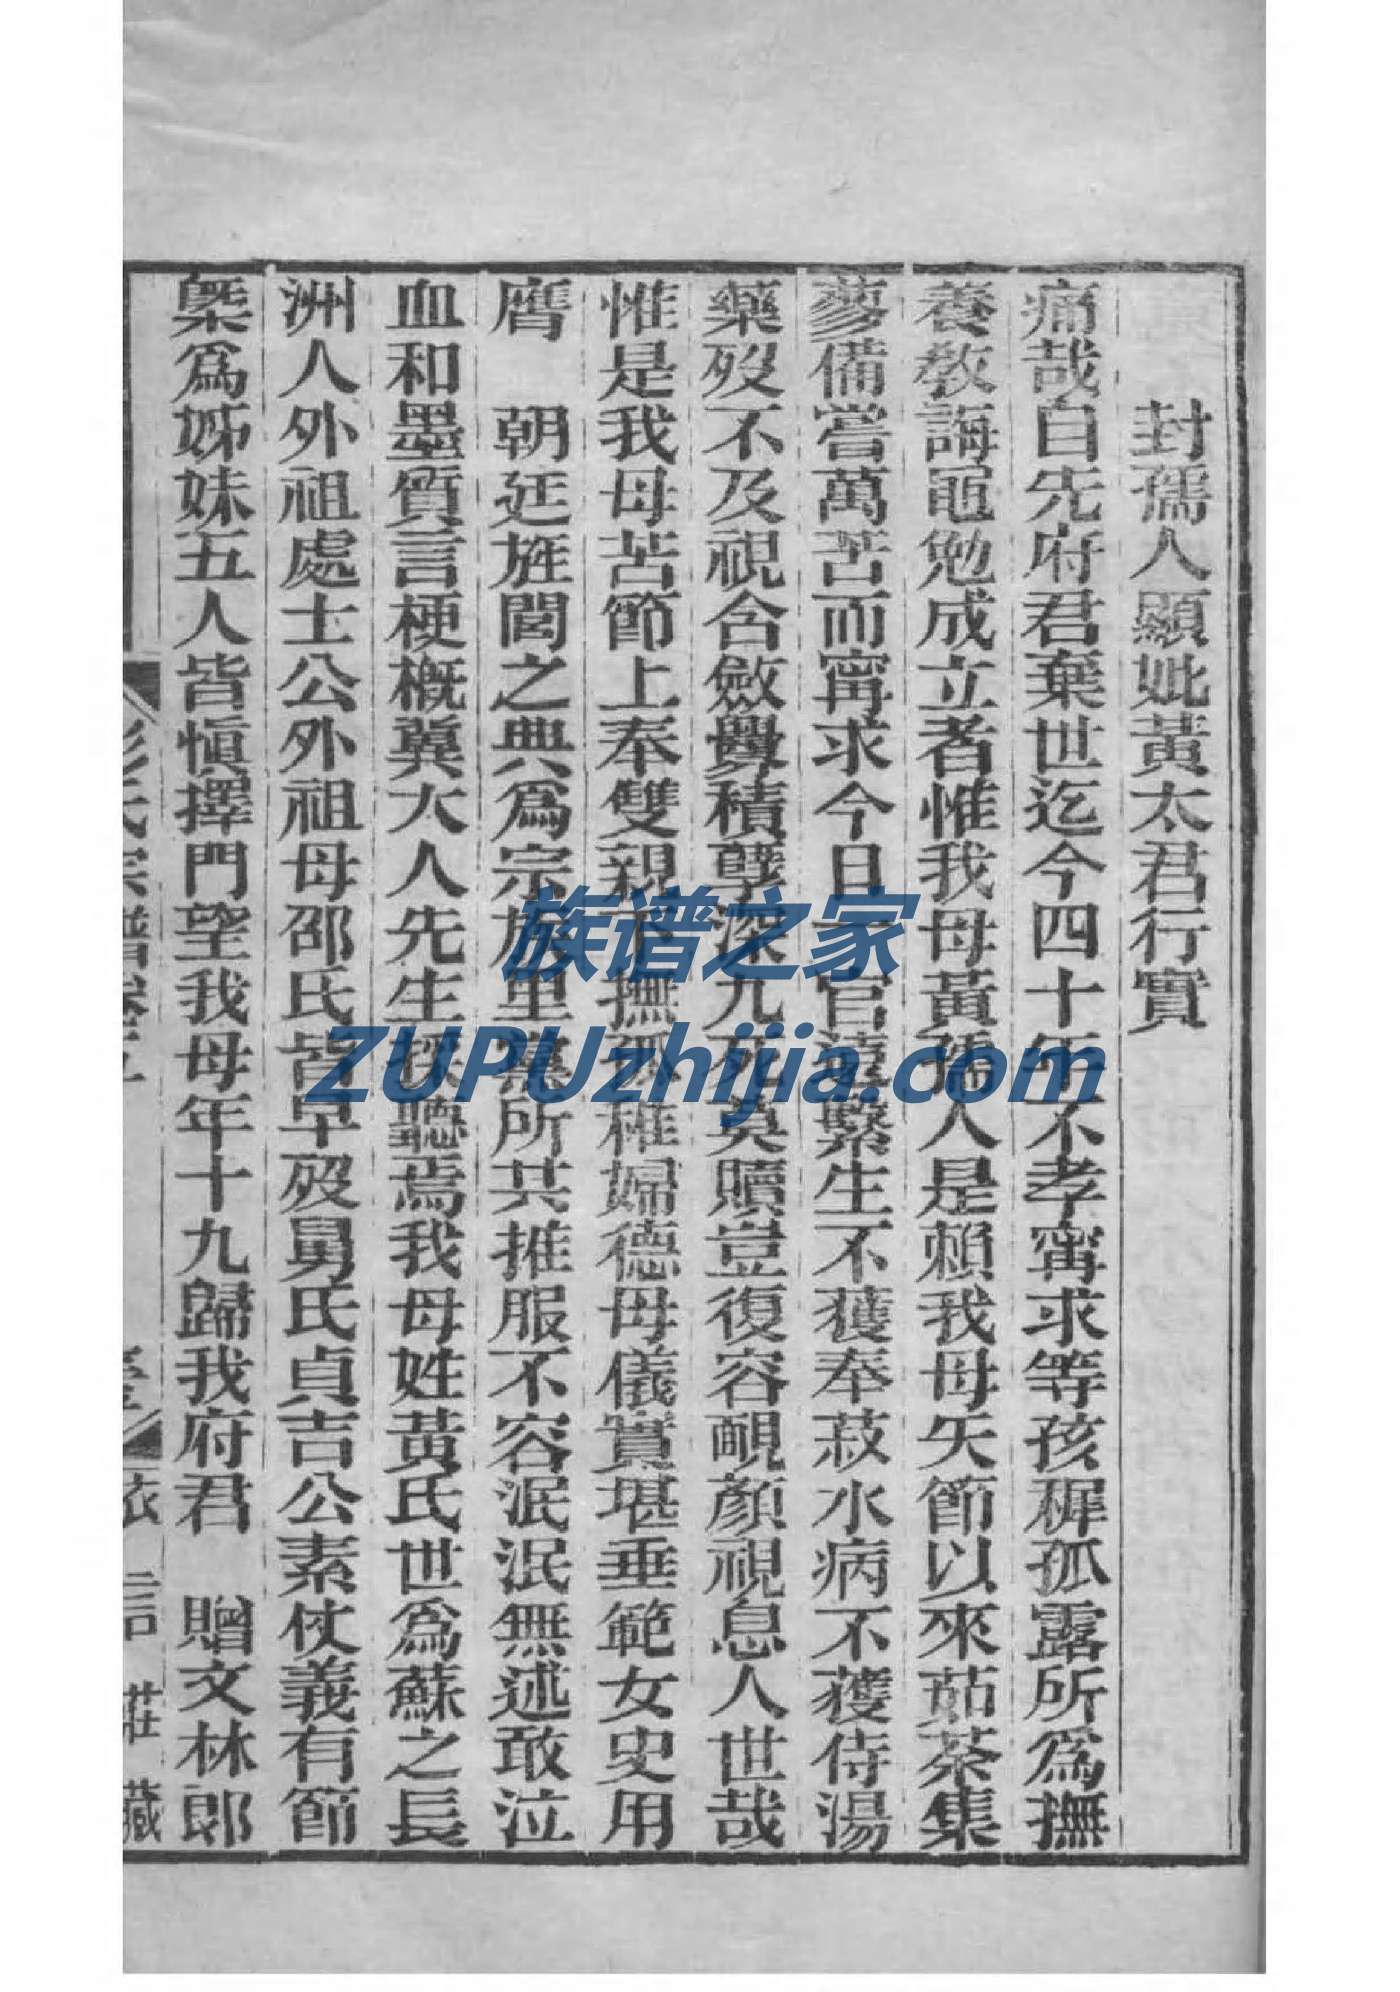 封孺人顯妣黃太君行實
痛哉自先府君棄世迄今四十年不孝甯求等孩穉孤露所爲撫
養敎誨黽勉成立者惟我母黃孺人是賴我母矢節以來茹荼集
蓼備嘗萬苦而甯求今日一官遠繫生不獲奉菽水病不獲侍湯
藥歿不及視含斂釁積孽深九死莫贖豈復容靦顏視息人世哉
惟是我母苦節上奉雙親下撫孤稚婦德母儀實堪垂範女史用
膺　朝廷旌閭之典爲宗族里黨所共推服不容泯泯無述敢泣
血和墨質言梗概冀大人先生採聽焉我母姓黃氏世爲蘇之長
洲人外祖處士公外祖母邵氏皆早歿舅氏貞吉公素仗義有節
槩爲姊妹五人皆慎擇門望我母年十九歸我府君　贈文林郎
彭氏宗譜卷
衣言莊藏
族谱之家
ZUPUzhijia.com